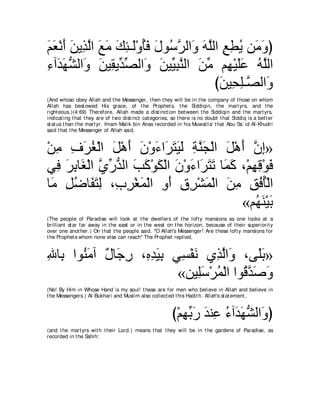 (وَمَن يُطِعِ اللَّهَ وَالرَّسُولَ فَأُوْلَـئِكَ مَعَ الَّذِينَ أَنْعَمَ
اللَّهُ عَلَيْهِم مِّنَ النَّبِيِّينَ وَالصِّدِّيقِينَ وَالشُّهَدَآءِ
وَالصَّـلِحِينَ)
(And whoso obey Allah and the Messenger, then they will be in the company of those on whom
Allah has bestowed His grace, of the Prophets, the Siddiqin, the martyrs, and the
righteous )(4:69) Therefore, Allah made a distinction between the Siddiqin and the martyrs,
indicating that they are of two distinct categories, so there is no doubt that Siddiq is a better
status than the martyr. Imam Malik bin Anas recorded in his Muwatta' that Abu Sa`id Al-Khudri
said that the Messenger of Allah said,
«إِنَّ أَهْلَ الْجَنَّةِ لَيَتَرَاءَوْنَ أَهْلَ الْغُرَفِ مِنْ
فَوْقِهِمْ، كَمَا تَتَرَاءَوْنَ الْكَوْكَبَ الدُّرِّيَّ الْغَابِرَ فِي
الْأُفُقِ مِنَ الْمَشْرِقِ أَوِ الْمَغْرِبِ، لِتَفَاضُلِ مَا
بَيْنَهُمْ»
(The people of Paradise will look at the dwellers of the lofty mansions as one looks at a
brilliant star far away in the east or in the west on the horizon, because of their superiority
over one another.) On that the people said, "O Allah's Messenger! Are these lofty mansions for
the Prophets whom none else can reach'' The Prophet replied,
«بَلَى، وَالَّذِي نَفْسِي بِيَدِهِ، رِجَالٌ آمَنُوا بِاللهِ
وَصَدَّقُوا الْمُرْسَلِينَ»
(No! By Him in Whose Hand is my soul! these are for men who believe in Allah and believe in
the Messengers.) Al-Bukhari and Muslim also collected this Hadith. Allah's statement,
(وَالشُّهَدَآءُ عِندَ رَبِّهِمْ)
(and the martyrs with their Lord.) means that they will be in the gardens of Paradise, as
recorded in the Sahih: